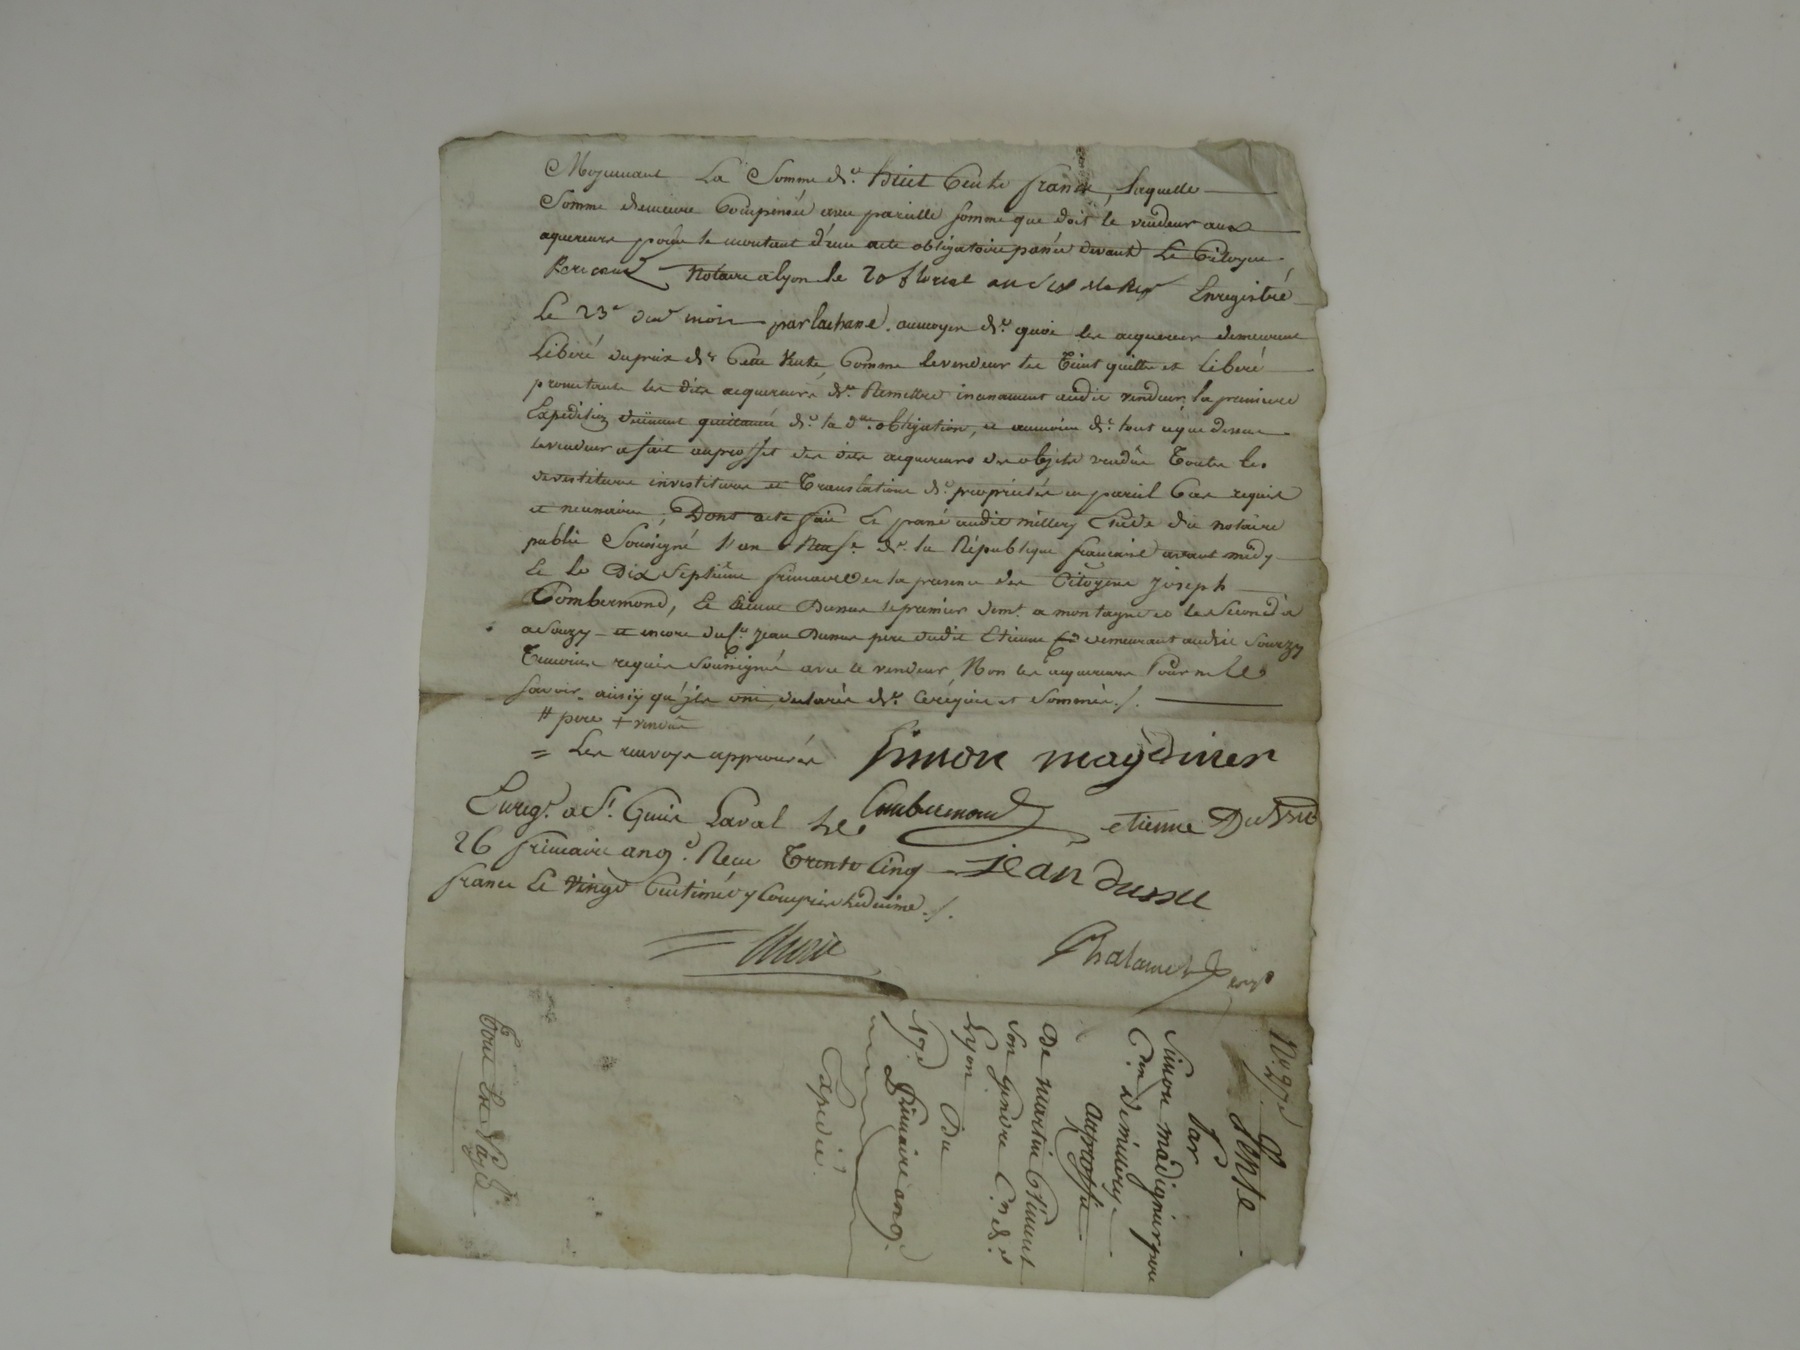 Moyennant La Somme de. huit Cents francs, laquelle
Somme demeure Compensée avec pareille somme que doit le vendeur aux
aquereurs pour le montant d'une acte obligatoire passée devant Le Citoyen
Notaire a lyon le 20 floreal an six de Rep Enregistré
Le 23e dud mois par lachase. aumoyen de. quoi les aquereurs demeurent
Libéré du prix de Cette Vente, Comme le vendeur les Tient quitte et Libéré
promettant les dits aquereurs de. Remettre incessament audit vendeur, la premiere
Expedition duement quittancée de. la dte. obligation, et aumoien de. tout ce que dessus
le vendeur a fait au proffit des dits aquereurs des objets vendûs Toutes les
devestitures investitures et Translations de. propriétés en pareil Cas requis
et necessaires; Dont acte fait Et passé audit millery Etude du notaire
public Soussigné l'an Neuf de. la République francaise avant midy
Et le Dix Septieme frimaire en la presence des Citoyens joseph
Combermond, Et Etienne Dussuc le premier demt a montagny et le Second a
a Sourzy et encore du Cn. jean Dussuc pere dudit Etienne demeurant audit Sourzy
Temoins requis Soussignés avec le vendeur, Non les aquereurs Pour ne le
savoir ainsy qu'ils ont déclarés de. Ce requis et Sommés ./.
# pere + vendûs
= Les renvoys approuvés Simon magdinier
Combermond etienne DuSSuc
Enregt. a St. Genis Laval Le
26 frimaire an 9e. Recu Trente Cinq
jean dussuc
francs Et Vingt Centimes y Compris Le dixme ./.
Chalamel
No. 97.
Vente
Par
Simon madignier pere
Cen. de millery
au proffit
De martin Climent
son gendre Cn. de
Lyon
Du
17e. frimaire an 9.
Expedié.